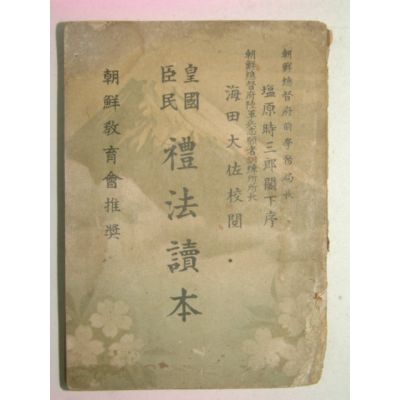 朝鮮總督府前學務局長
塩原時三郎閣下序
朝鮮總督府陸軍兵志願者訓練所所長
海田大佐校閱
皇國
臣民
禮法讀本
朝鮮敎育會推奬